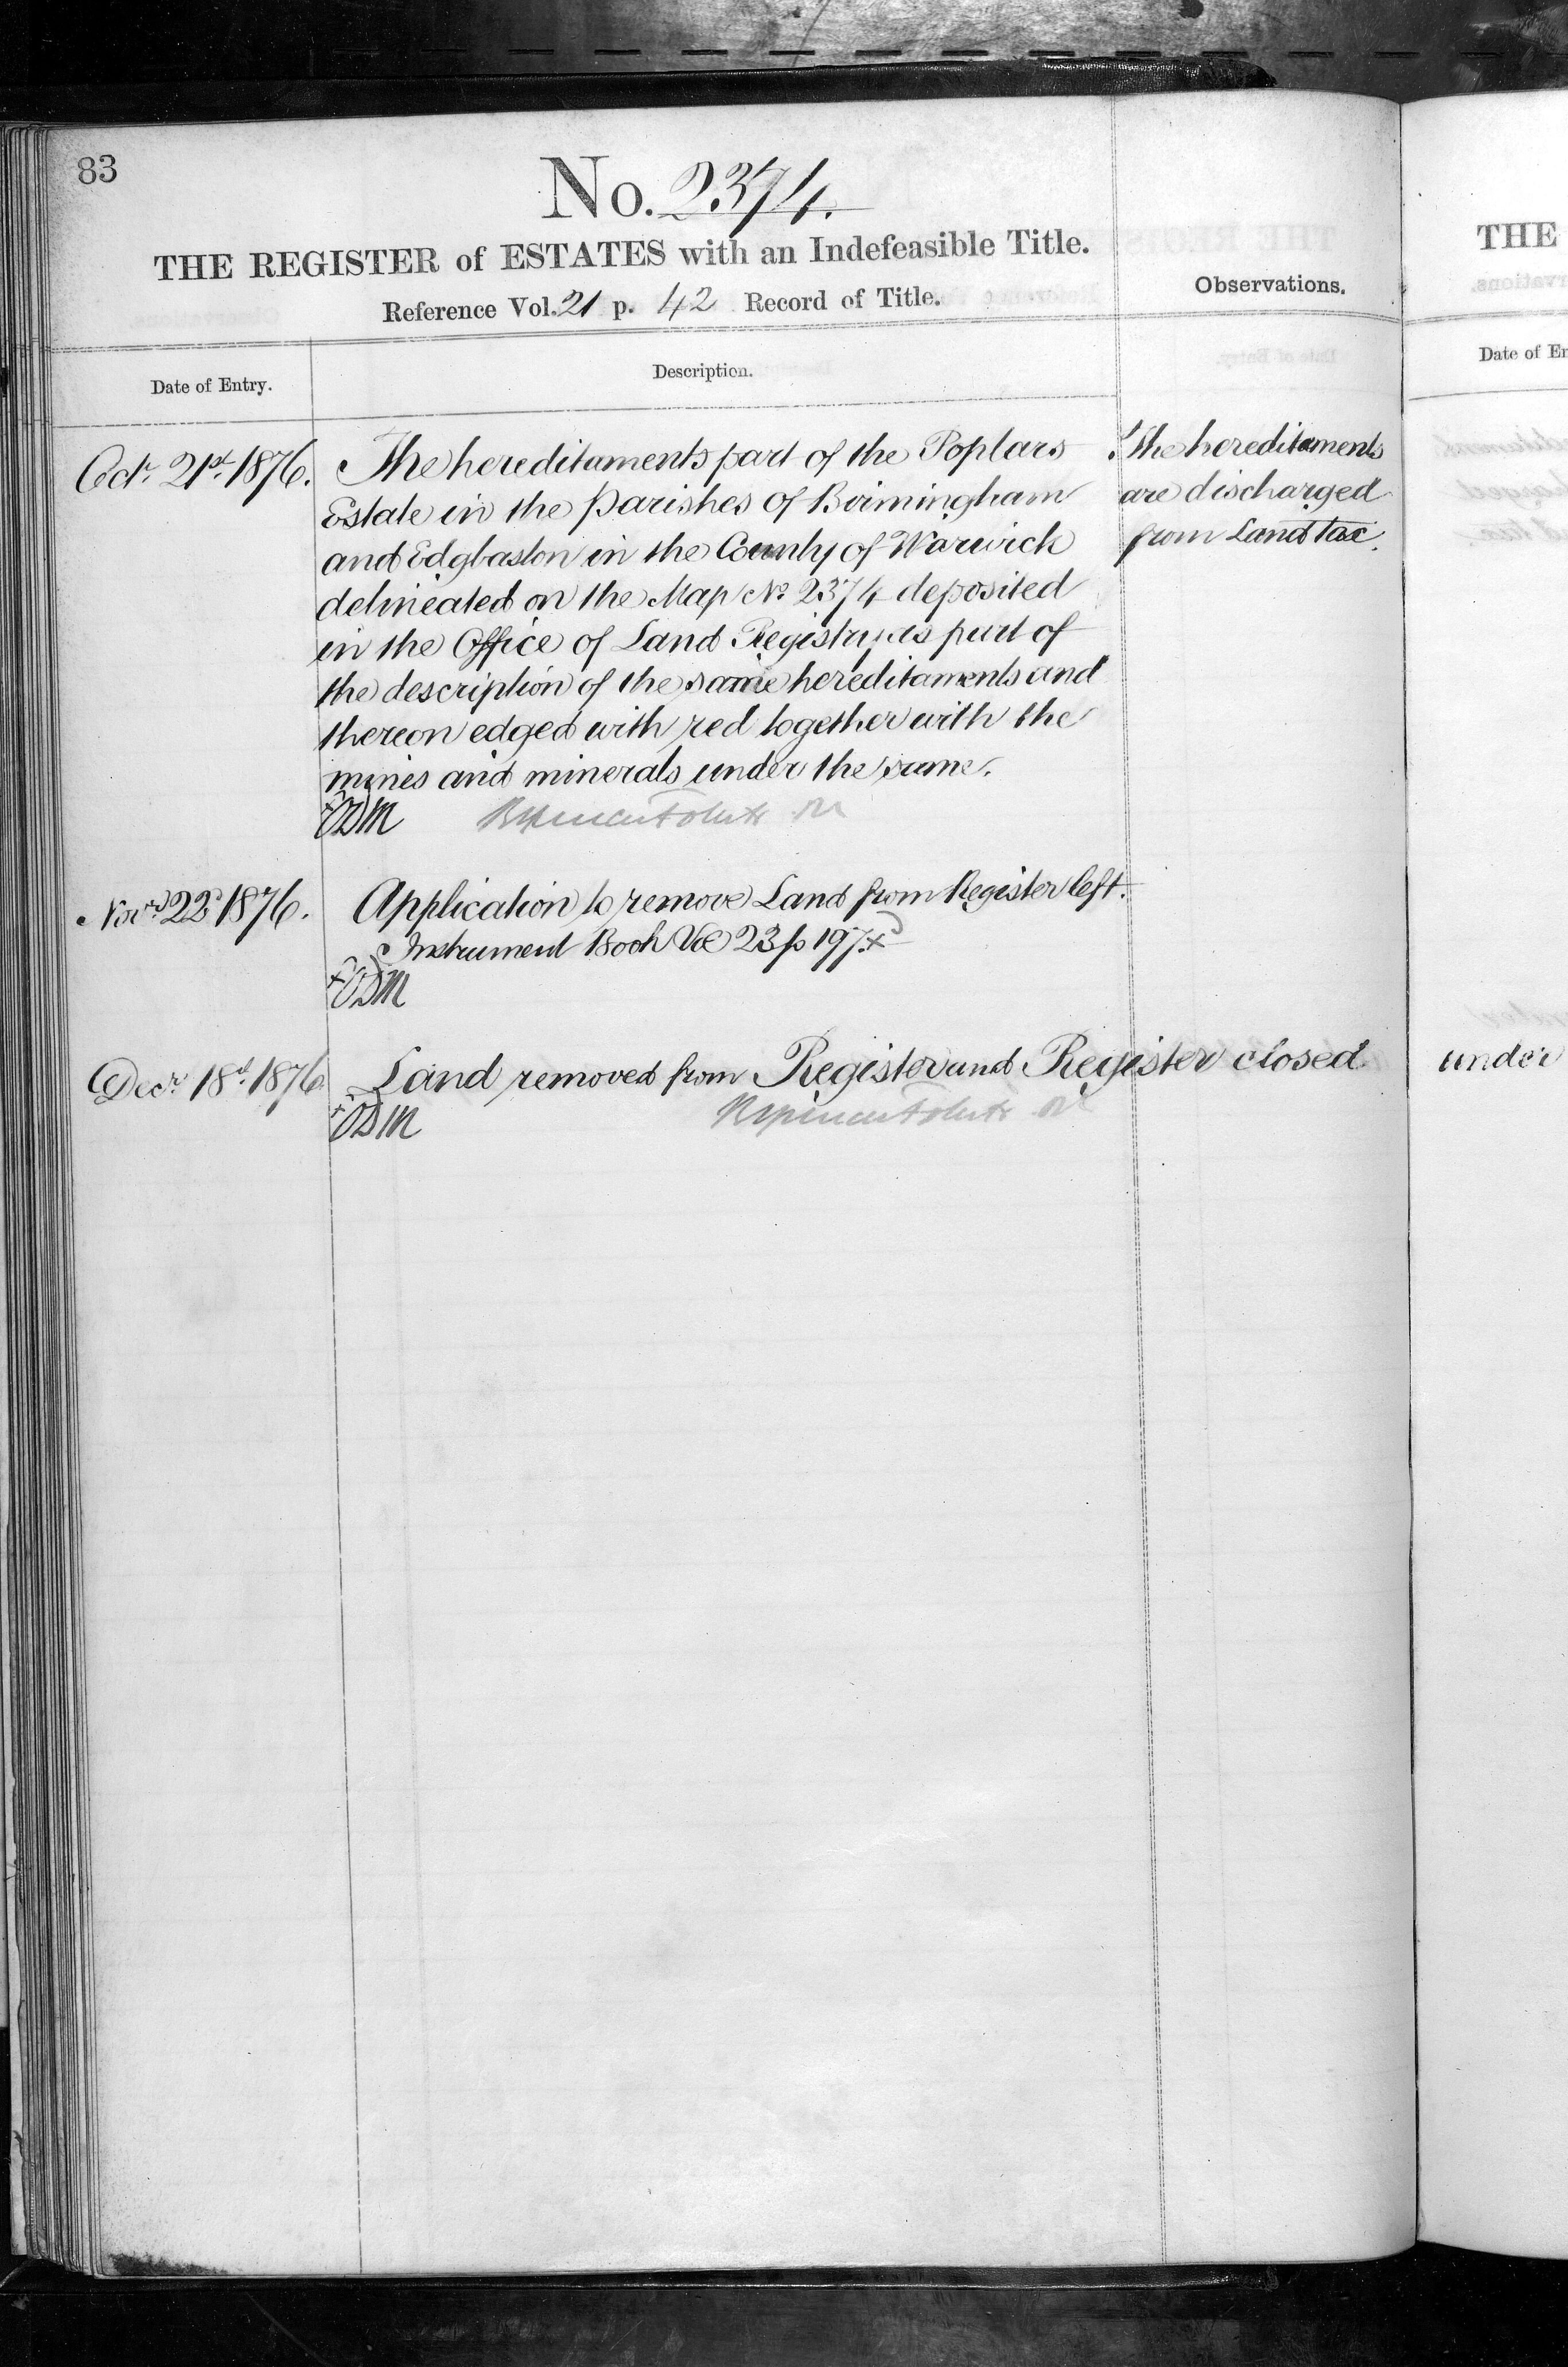 83
No. 2374.
THE REGISTER of ESTATES with an Indefeasible Title.
Reference Vol. 21 p. 42 Record of Title.
Observations.
Date of Entry.
Description.
Octr. 21st. 1876.
The hereditaments part of the Poplars
Estate in the Parishes of Birmingham
and Edgbaston in the County of Warwick
delineated on the Map No 2374 deposited
in the Office of Land Registry as part of
the description of the same hereditaments and
thereon edged with red together with the
mines and minerals under the same.
The hereditaments
are discharged
from Land tax.
Novr. 22d 1876.
Application to remove Land from Register left.
Instrument Book Vol 23 p 197
Decr. 18th. 1876
Land removed from Register and Register closed
THE
Date of En
under